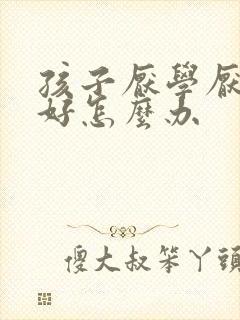 孩子厭學厭
好怎麼办
傻大叔笨丫頭